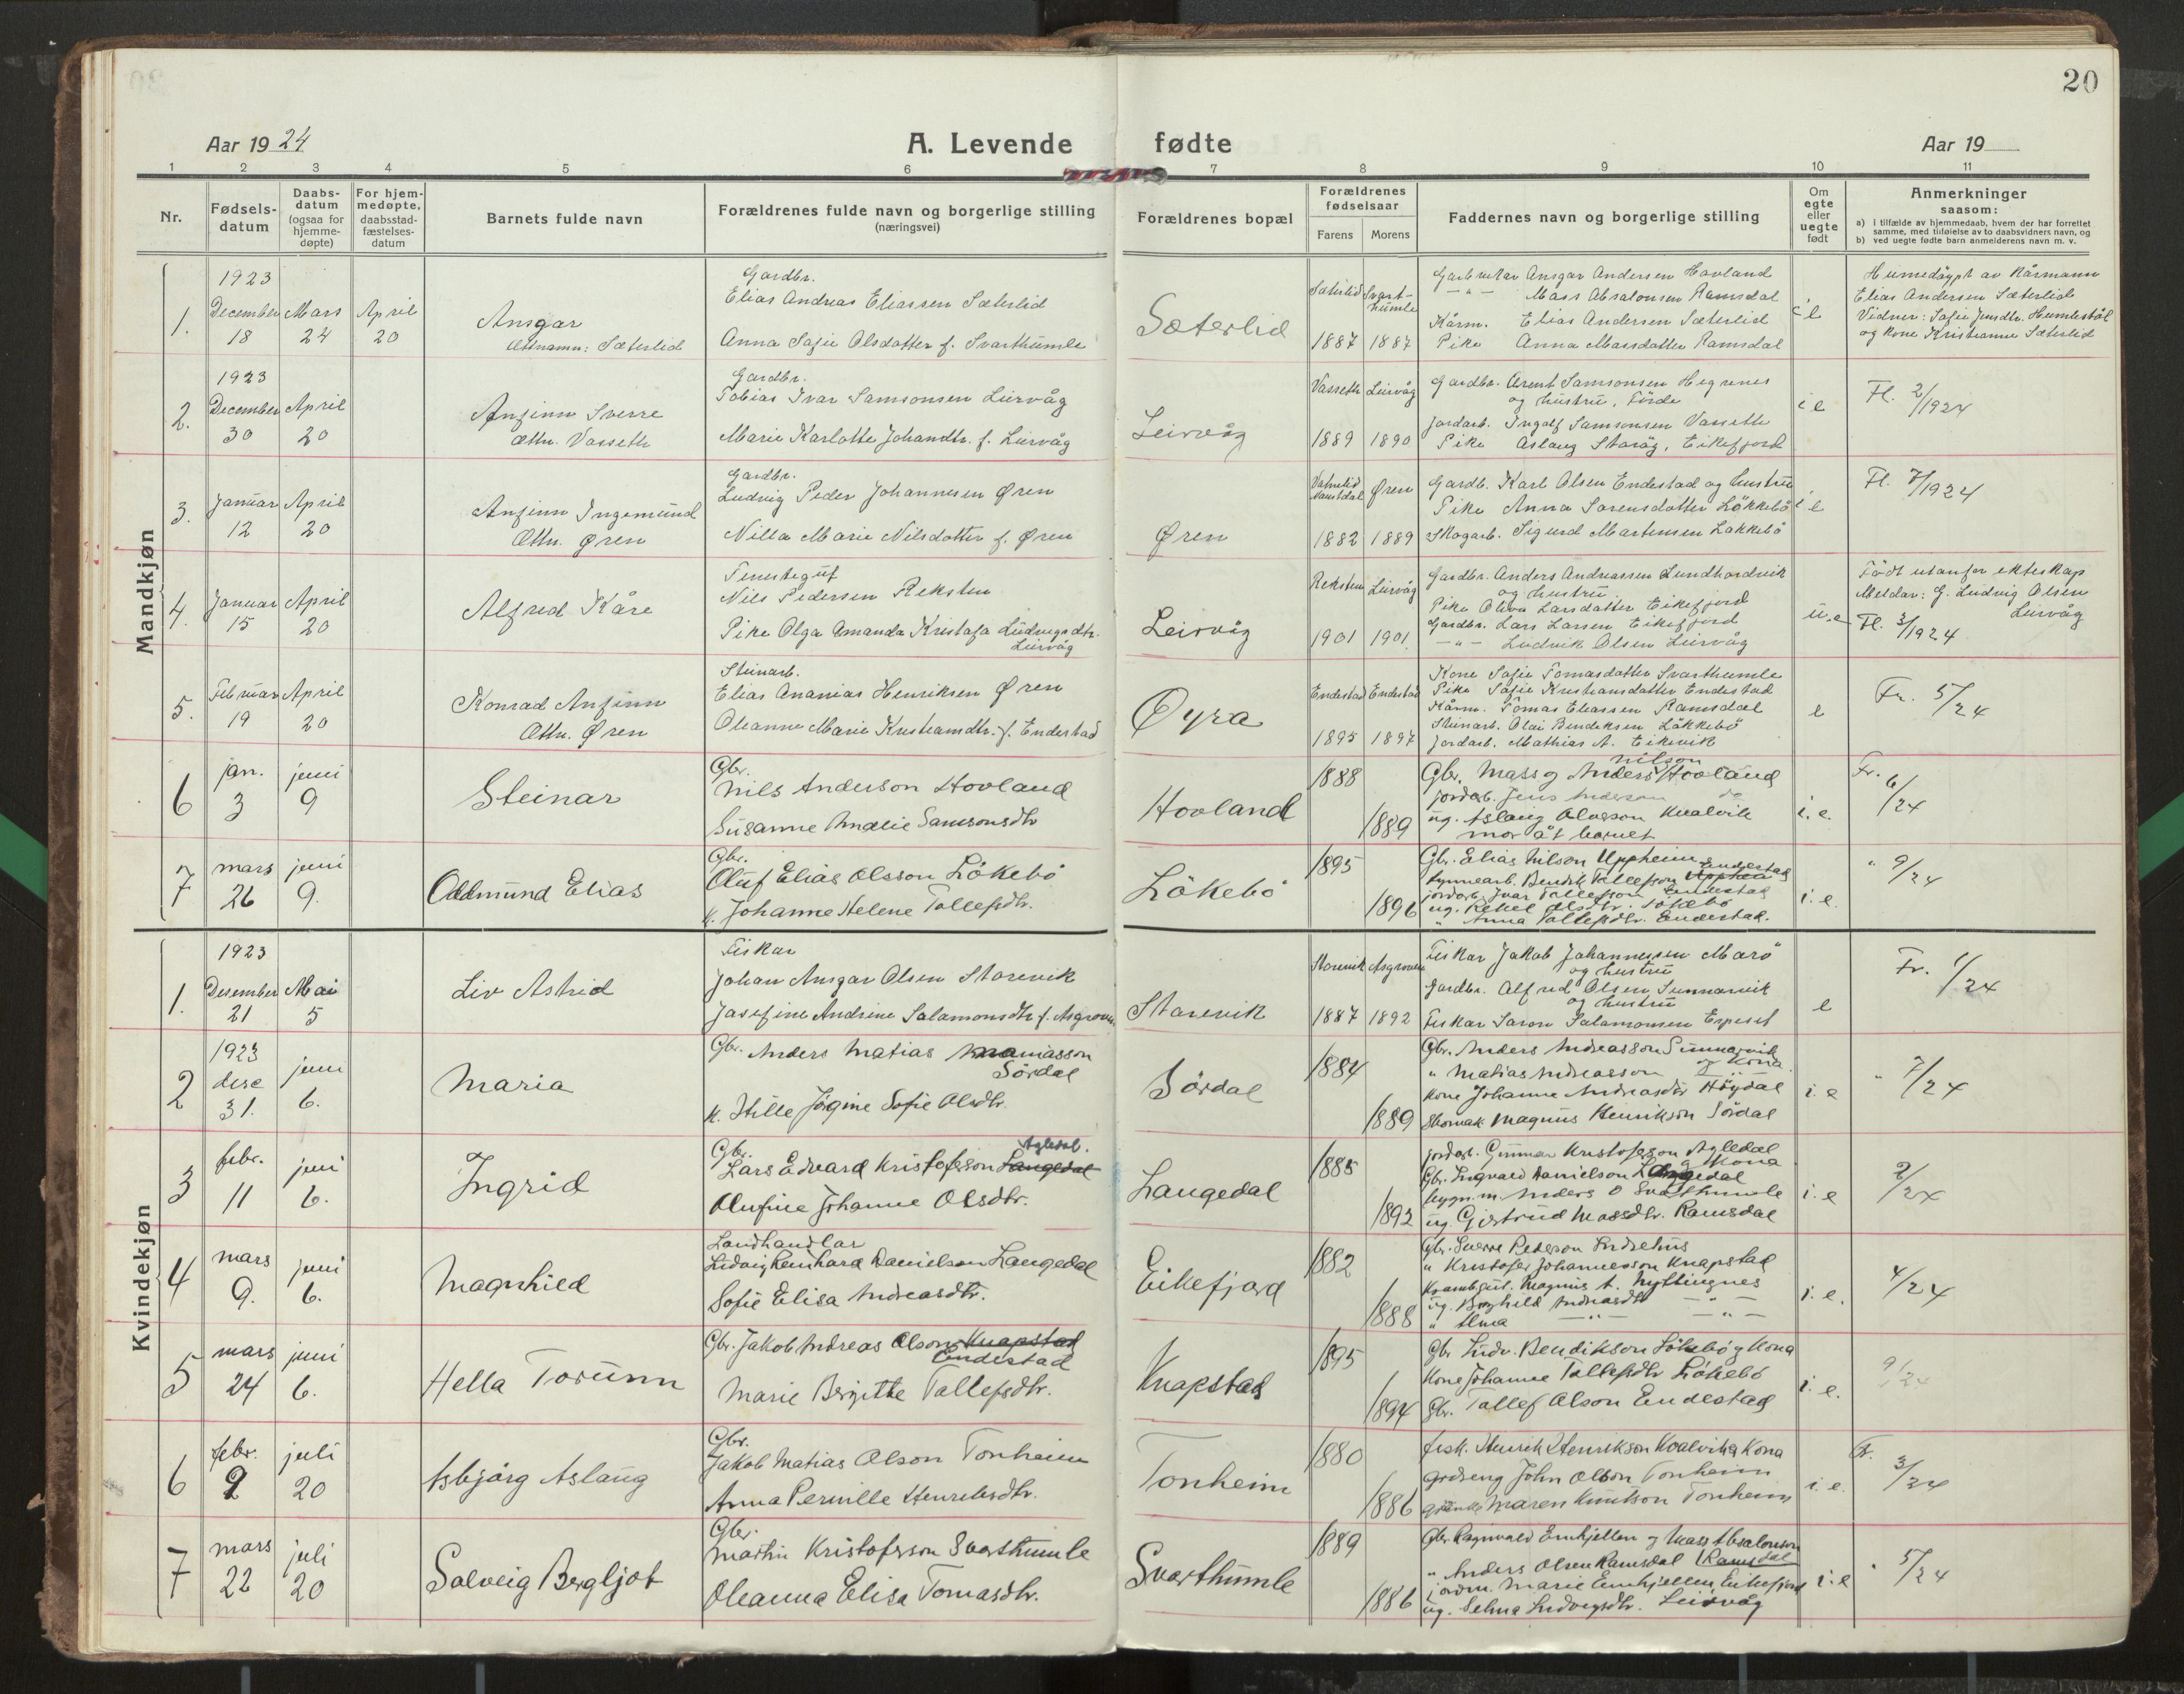 20
Aar 1924
A. Levende fødte
Aar 19
1 2 3 4 5 6 7 8 9 10 11
Nr.
Fødselsdatum
Daabsdatum (ogsaa for hjemmedøpte)
For hjemmedøpte, daabsstadfæstelsesdatum
Barnets fulde navn
Forældrenes fulde navn og borgerlige stilling (næringsvei)
Forældrenes bopæl
Forældrenes fødselsaar
Farens Morens
Faddernes navn og borgerlige stilling
Om egte eller uegte født
Anmerkninger saasom:
a) i tilfælde av hjemmedaab, hvem der har forrettet samme, med tilføielse av to daabsvidners navn, og
b) ved uegte fødte barn anmelderens navn m. v.
Mandkjøn
1.
1923
December 18
Mars 24
April 20
Ansgar
Ættnamn: Sæterlid
Gardbr.
Elias Andreas Eliassen Sæterlid
Anna Sofie Olsdatter f. Svarthumle
Sæterlid
Sæterlid 1887
Svarthumle 1887
Ansgar Andersen Hovland
— " — Mass Absalonsen Ramsdal
Kårm. Elias Andersen Sæterlid
Pike Anna Massdatter Ramsdal
e
Heimedøypt av Kårmann
Elias Andersen Sæterlid
Vidner: Sofie Jensdtr. Humlestøl
og kone Kristianne Sæterlid
2.
1923
December 30
April 20
Anfinn Sverre
Ættn. Vasseth
Gardbr.
Tobias Ivar Samsonsen Leirvåg
Marie Karlotte Johandtr. f. Leirvåg
Leirvåg
Vasseth 1889
Leirvåg 1890
Gardbr. Arent Samsonsen Hegrenes
og hustru, Förde
Jordarb. Ingolf Samsonsen Vasseth
Pike Aslaug Starøy, Eikefjord
i e
Fl. 2/1924
3.
Januar 12
April 20
Anfinn Ingemund
Ættn. Øren
Gardbr.
Ludvig Peder Johannesen Øren
Nilla Marie Nilsdatter f. Øren
Øren
Naustdal 1882
Øren 1889
Gardb. Karl Olsen Endestad og hustru
Pike Anna Sorensdatter Løkkebø
Skogarb. Sigurd Martensen Løkkebø
i e
Fl. 7/1924
4.
Januar 15
April 20
Alfred Kåre
Tenestegut
Nils Pedersen Reksten
Pike Olga Amanda Kristofa Ludvigsdtr.
Leirvåg
Leirvåg
Reksten 1901
Leirvåg 1901
Gardbr. Anders Andreassen Sundhordvik
og hustru
Pike Oliva Larsdatter Eikefjord
Gardbr. Lars Larsen Eikefjord
— " — Ludvik Olsen Leirvåg
u.e
Födt utanfor ekteskap
Meldar: G. Ludvig Olsen
Leirvåg
Fl. 3/1924
5.
Februar 19
April 20
Konrad Anfinn
Ættn. Øren
Steinarb.
Elias Ananias Henriksen Øren
Oleanne Marie Kristiansdtr. f. Endestad
Øyra
Endestad 1895
Endestad 1897
Kone Sofie Tomasdatter Svarthumle
Pike Sofie Kristiansdatter Endestad
Kårm. Tomas Eliassen Ramsdal
Steinarb. Olai Bendiksen Løkkebø
Jordarb. Mathias A. Eikevik
e
Fr. 5/24
6
jan. 3
juni 9
Steinar
Gbr.
Nils Anderson Hovland
Susanne Amalie Samsonsdtr
Hovland
1888
1889
Gbr. Mass og Anders Nilson Hovland
jordarb. Jens Anderson do
ug. Aslaug Olvsson Kvalvik
mor åt barnet
i. e.
Fr. 6/24
7
mars 26
juni 9.
Oddmund Elias
Gbr.
Oluf Elias Olsson Lökebö
k. Johanne Helene Tollefsdtr.
Lökebö
1895
1896
Gbr. Elias Nilson Uppheim
Bendik Tollefson Endestad
jordarb. Ivar Tollefson Endestad
ug. Olsdtr. Lökebö
" Anna Tollefsdtr. Endestad.
i. e.
" 9/24
Kvindekjøn
1.
1923
Desember 21
Mai 5
Liv Astrid
Fiskar
Johan Ansgar Olsen Storevik
Josefine Andrine Salamonsdtr f. Asgroven
Storevik
Storevik 1887
Asgroven 1892
Fiskar Jakob Johannessen Marö
og hustru
Gardbr. Alfred Olsen Sunnarvik
og hustru
Fiskar Saron Salamonsen Espeset
e
Fr. 1/24
2
1923
dese 31.
juni 6.
Maria
Gbr. Anders Matias Ananiasson
Sördal
k. Hille Jörgine Sofie Olsdtr.
Sördal
1884
1889
Gbr. Anders Andreasson Sunnarvik
og kona
" Matias Andreasson
kone Johanne Andreasdtr Höydal
Skomak. Magnus Henrikson Sördal
i. e
" 7/24
3
febr. 11
juni 6.
Ingrid
Gbr.
Lars Edvard Kristoferson Langedal Agledal.
Olufine Johanne Olsdtr.
Langedal
1885
1892
jordarb. Gunnar Kristoferson Aglledal
og kona
Gbr. Ingvald Danielson Langedal
bygn.m. Anders O Svarthumle
ug. Gjertrud Massdtr. Ramsdal
i. e
2/24
4
mars 9.
juni 6.
Magnhild
Landhandlar
Ludvig Reinhard Danielson Langedal
Sofie Elisa Andreasdtr.
Eikefjord
1882
1888
Gbr. Sverre Peterson Indrehus
" Kristofer Johannesson Knapstad
Krambgut. Magnus A. Nyttingnes
ug. Borghild Andreasdtr — " —
" Alma — " — — " —
i. e.
4/24
5
mars 24
juni 6.
Hella Torunn
Gbr. Jakob Andreas Olson Knapstad
Endestad
Marie Bergitte Tollefsdtr.
Knapstad
1895
1894
Gbr Ludv. Bendikson Lökebö og kona
Kone Johanne Tollefsdtr Lökebö
Gbr. Tollef Olson Endestad
i. e.
9/24
6
febr. 2
juli 20
Asbjörg Aslaug
Gbr.
Jakob Matias Olson Tonheim
Anna Pernille Henriksdtr.
Tonheim
1880
1886
fisk. Henrik Henrikson Kvalvik og kona
John Olson Tonheim
Maren Knutson Tonheim
i. e.
Fr. 3/24
7
mars 22
juli 20
Solveig Bergljot
Gbr.
Martin Kristoferson Svarthumle
Oleanna Elisa Tomasdtr.
Svarthumle
1889
1886
Gbr. Ragnvald Emhjellen og Mass Absalonson
Ramsdal
" Anders Olsen Ramsdal
jordm. Marie Emhjellen, Eikefjord
ug. Selma Ludvigsdtr. Leirvåg
i. e
" 5/24